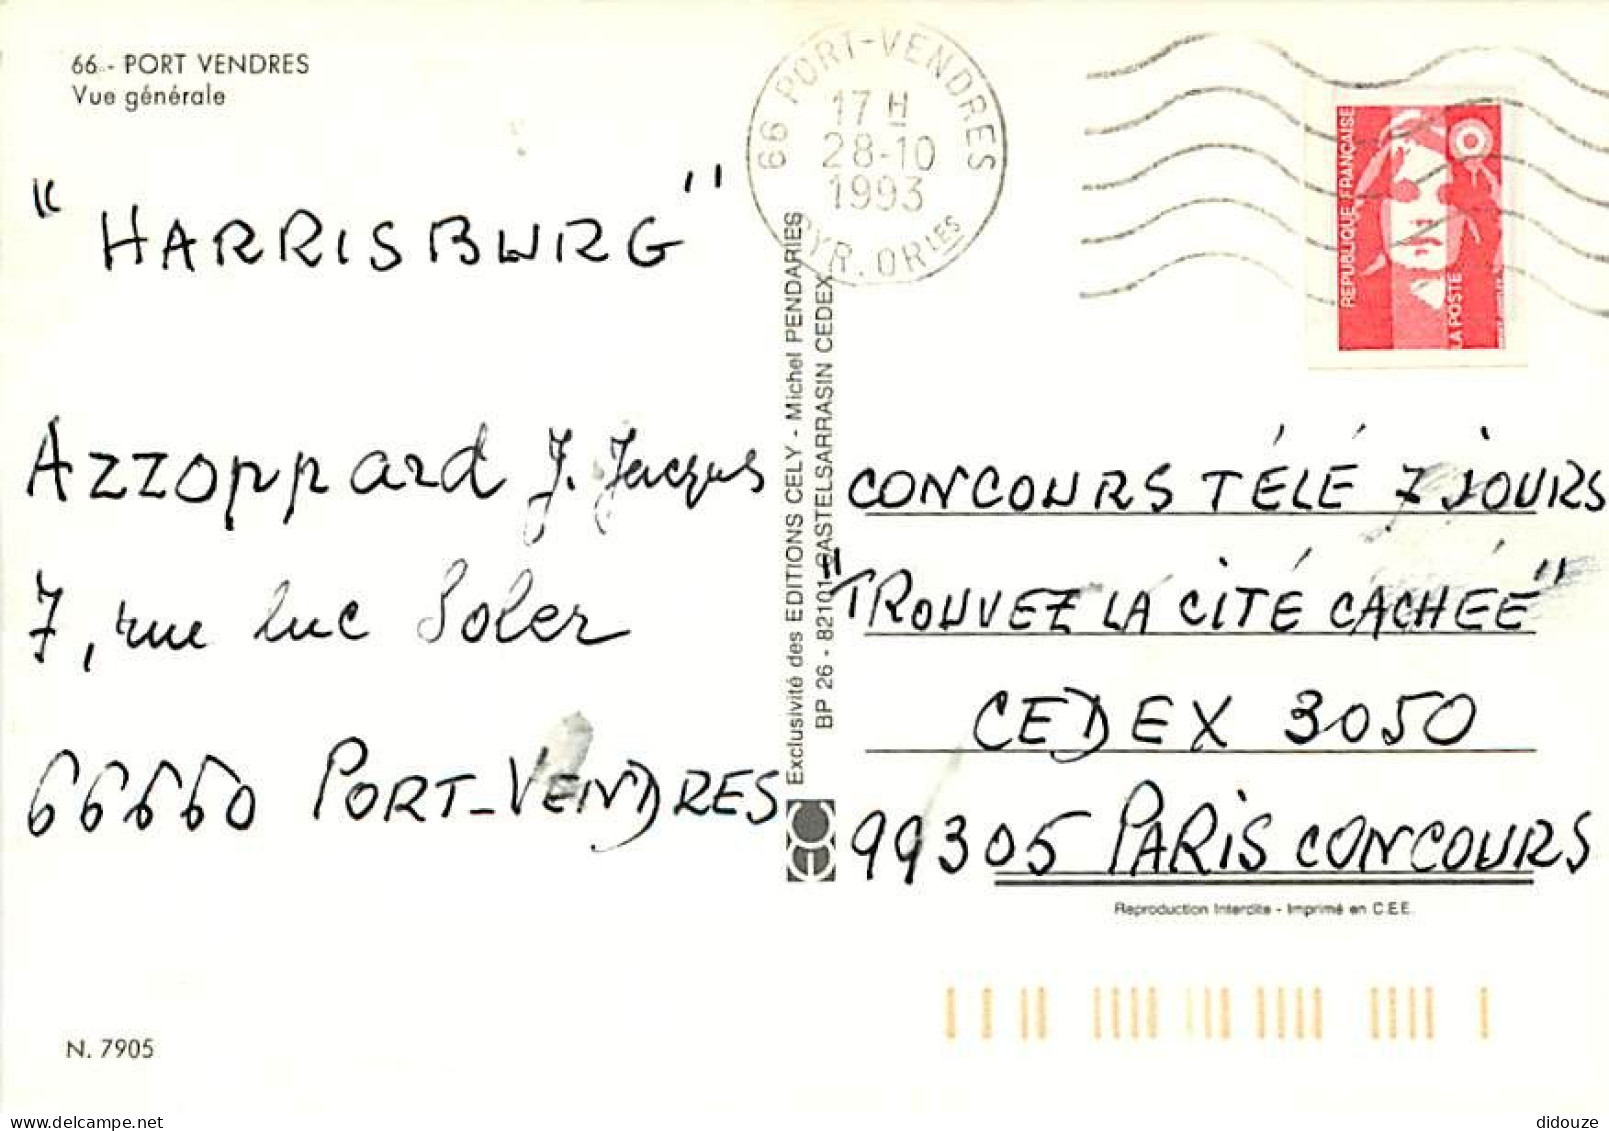 66 - PORT VENDRES
Vue générale
66 PORT-VENDRES
17 H
28-10
1993
PYR. ORLES
REPUBLIQUE FRANÇAISE
LA POSTE
"HARRISBURG"
Azzoppard J. Jacques
7, rue luc Soler
66660 PORT-VENDRES
Exclusivité des EDITIONS CELY - Michel PENDARIES
BP 26 - 82101 CASTELSARRASIN CEDEX
CONCOURS TÉLÉ 7 JOURS
"TROUVEZ LA CITÉ CACHÉE"
CEDEX 3050
99305 PARIS CONCOURS
Reproduction Interdite - Imprimé en C.E.E.
N. 7905
didouze